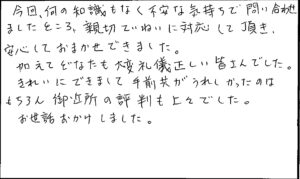 今回、何の知識もなく不安な気持ちで問い合わせ
ましたところ、親切ていねいに対応して頂き、
安心しておまかせできました。
加えてどなたも大変礼儀正しい皆さんでした。
きれいにできまして手前共がうれしかったのは
もちろん御近所の評判も上々でした。
お世話おかけしました。